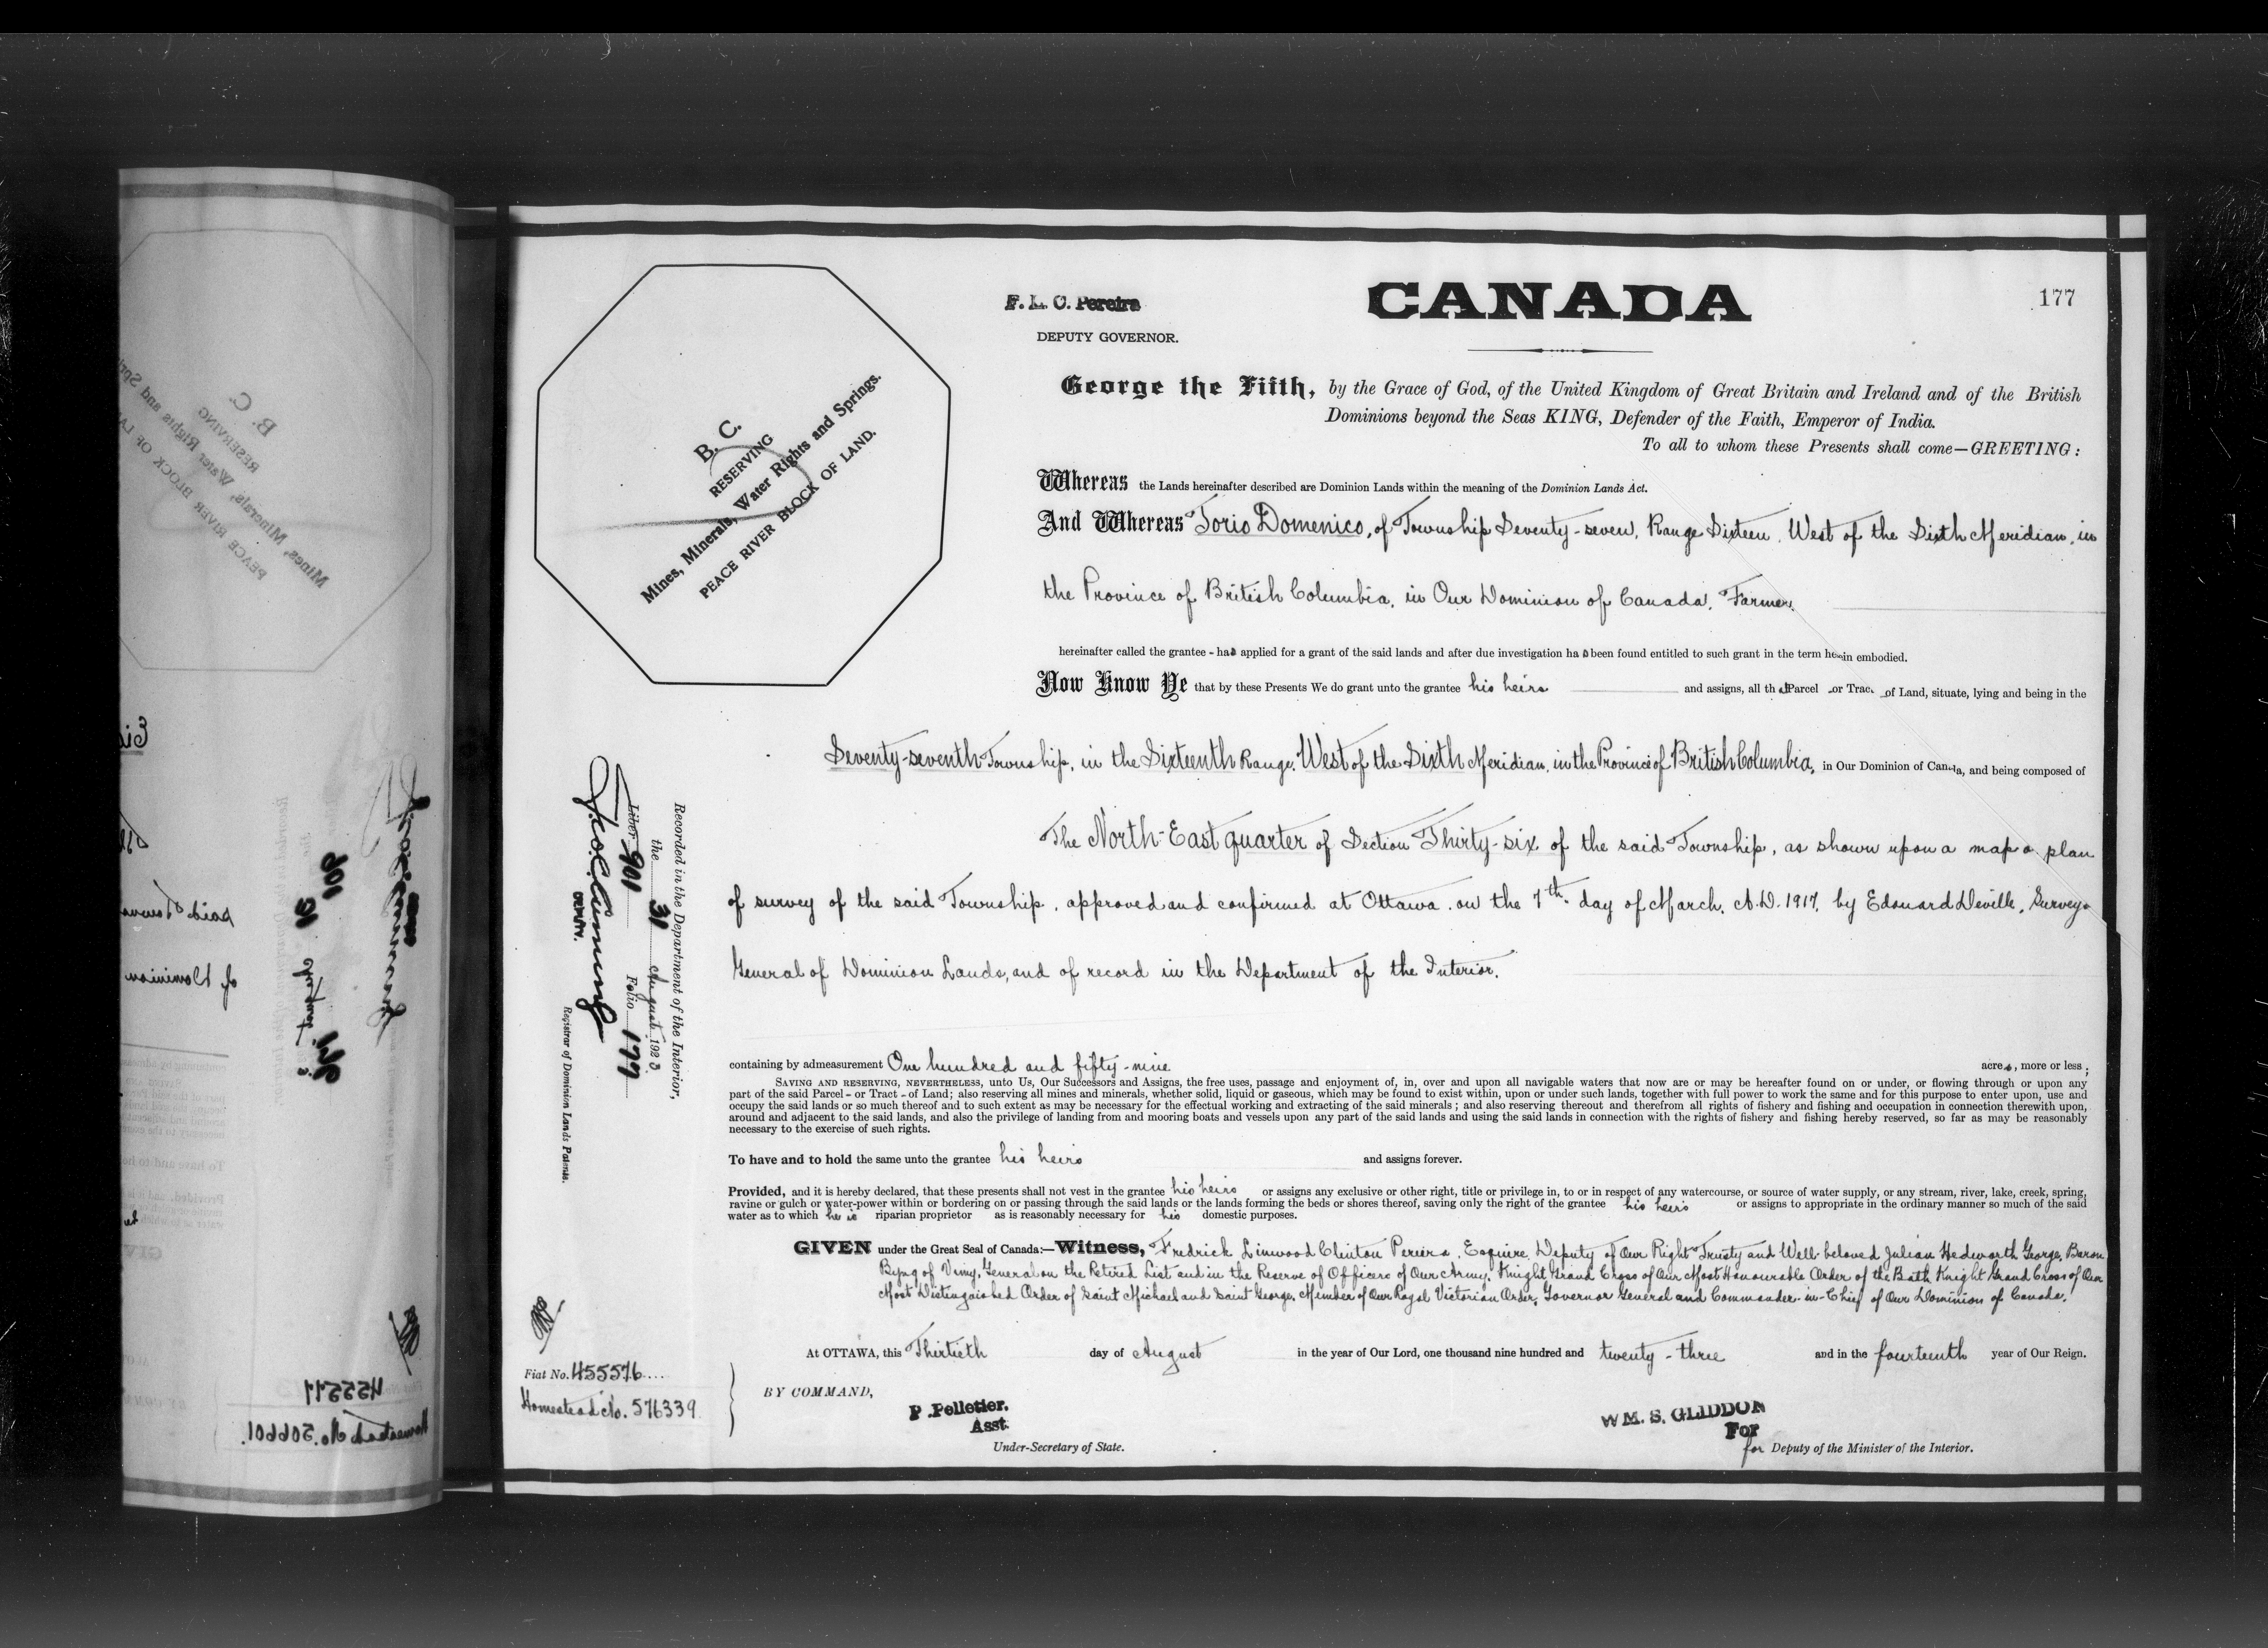 177
CANADA
F. L. C. Pereira
DEPUTY GOVERNOR.
George the Fifth, by the Grace of God, of the United Kingdom of Great Britain and Ireland and of the British
Dominions beyond the Seas KING, Defender of the Faith, Emperor of India.
To all to whom these Presents shall come—GREETING:
B. C.
RESERVING
Mines, Minerals, Water Rights and Springs.
PEACE RIVER BLOCK OF LAND.
Whereas the Lands hereinafter described are Dominion Lands within the meaning of the Dominion Lands Act.
And Whereas Torio Domenico, of Township Seventy-seven, Range Sixteen, West of the Sixth Meridian, in
the Province of British Columbia, in Our Dominion of Canada, Farmer,
hereinafter called the grantee - has applied for a grant of the said lands and after due investigation ha s been found entitled to such grant in the term herein embodied.
Now Know Ye that by these Presents We do grant unto the grantee his heirs and assigns, all th at Parcel or Tract of Land, situate, lying and being in the
Seventy-seventh Township, in the Sixteenth Range, West of the Sixth Meridian, in the Province of British Columbia, in Our Dominion of Canada, and being composed of
The North-East quarter of Section Thirty-six of the said Township, as shown upon a map or plan
of survey of the said Township, approved and confirmed at Ottawa, on the 7th day of March, A.D. 1917, by Edouard Deville, Surveyor
General of Dominion Lands, and of record in the Department of the Interior.
containing by admeasurement One hundred and fifty-nine acres, more or less;
SAVING AND RESERVING, NEVERTHELESS, unto Us, Our Successors and Assigns, the free uses, passage and enjoyment of, in, over and upon all navigable waters that now are or may be hereafter found on or under, or flowing through or upon any
part of the said Parcel - or Tract - of Land; also reserving all mines and minerals, whether solid, liquid or gaseous, which may be found to exist within, upon or under such lands, together with full power to work the same and for this purpose to enter upon, use and
occupy the said lands or so much thereof and to such extent as may be necessary for the effectual working and extracting of the said minerals; and also reserving thereout and therefrom all rights of fishery and fishing and occupation in connection therewith upon,
around and adjacent to the said lands, and also the privilege of landing from and mooring boats and vessels upon any part of the said lands and using the said lands in connection with the rights of fishery and fishing hereby reserved, so far as may be reasonably
necessary to the exercise of such rights.
To have and to hold the same unto the grantee his heirs and assigns forever.
Provided, and it is hereby declared, that these presents shall not vest in the grantee his heirs or assigns any exclusive or other right, title or privilege in, to or in respect of any watercourse, or source of water supply, or any stream, river, lake, creek, spring,
ravine or gulch or water-power within or bordering on or passing through the said lands or the lands forming the beds or shores thereof, saving only the right of the grantee his heirs or assigns to appropriate in the ordinary manner so much of the said
water as to which he is riparian proprietor as is reasonably necessary for his domestic purposes.
GIVEN under the Great Seal of Canada:—Witness, Fredrick Linwood Clinton Pereira, Esquire, Deputy of Our Right Trusty and Well-beloved Julian Hedworth George, Baron
Byng of Vimy, General on the Retired List and in the Reserve of Officers of Our Army, Knight Grand Cross of Our Most Honourable Order of the Bath, Knight Grand Cross of Our
Most Distinguished Order of Saint Michael and Saint George, Member of Our Royal Victorian Order, Governor General and Commander-in-Chief of Our Dominion of Canada.
At OTTAWA, this Thirtieth day of August in the year of Our Lord, one thousand nine hundred and twenty-three and in the fourteenth year of Our Reign.
BY COMMAND,
P. Pelletier.
Asst.
Under-Secretary of State.
WM. S. GLIDDON
For
for Deputy of the Minister of the Interior.
Recorded in the Department of the Interior,
the 31 August 1923
Liber 901 Folio 177
DEPUTY.
Registrar of Dominion Lands Patents.
Fiat No. 455576
Homestead No. 576339